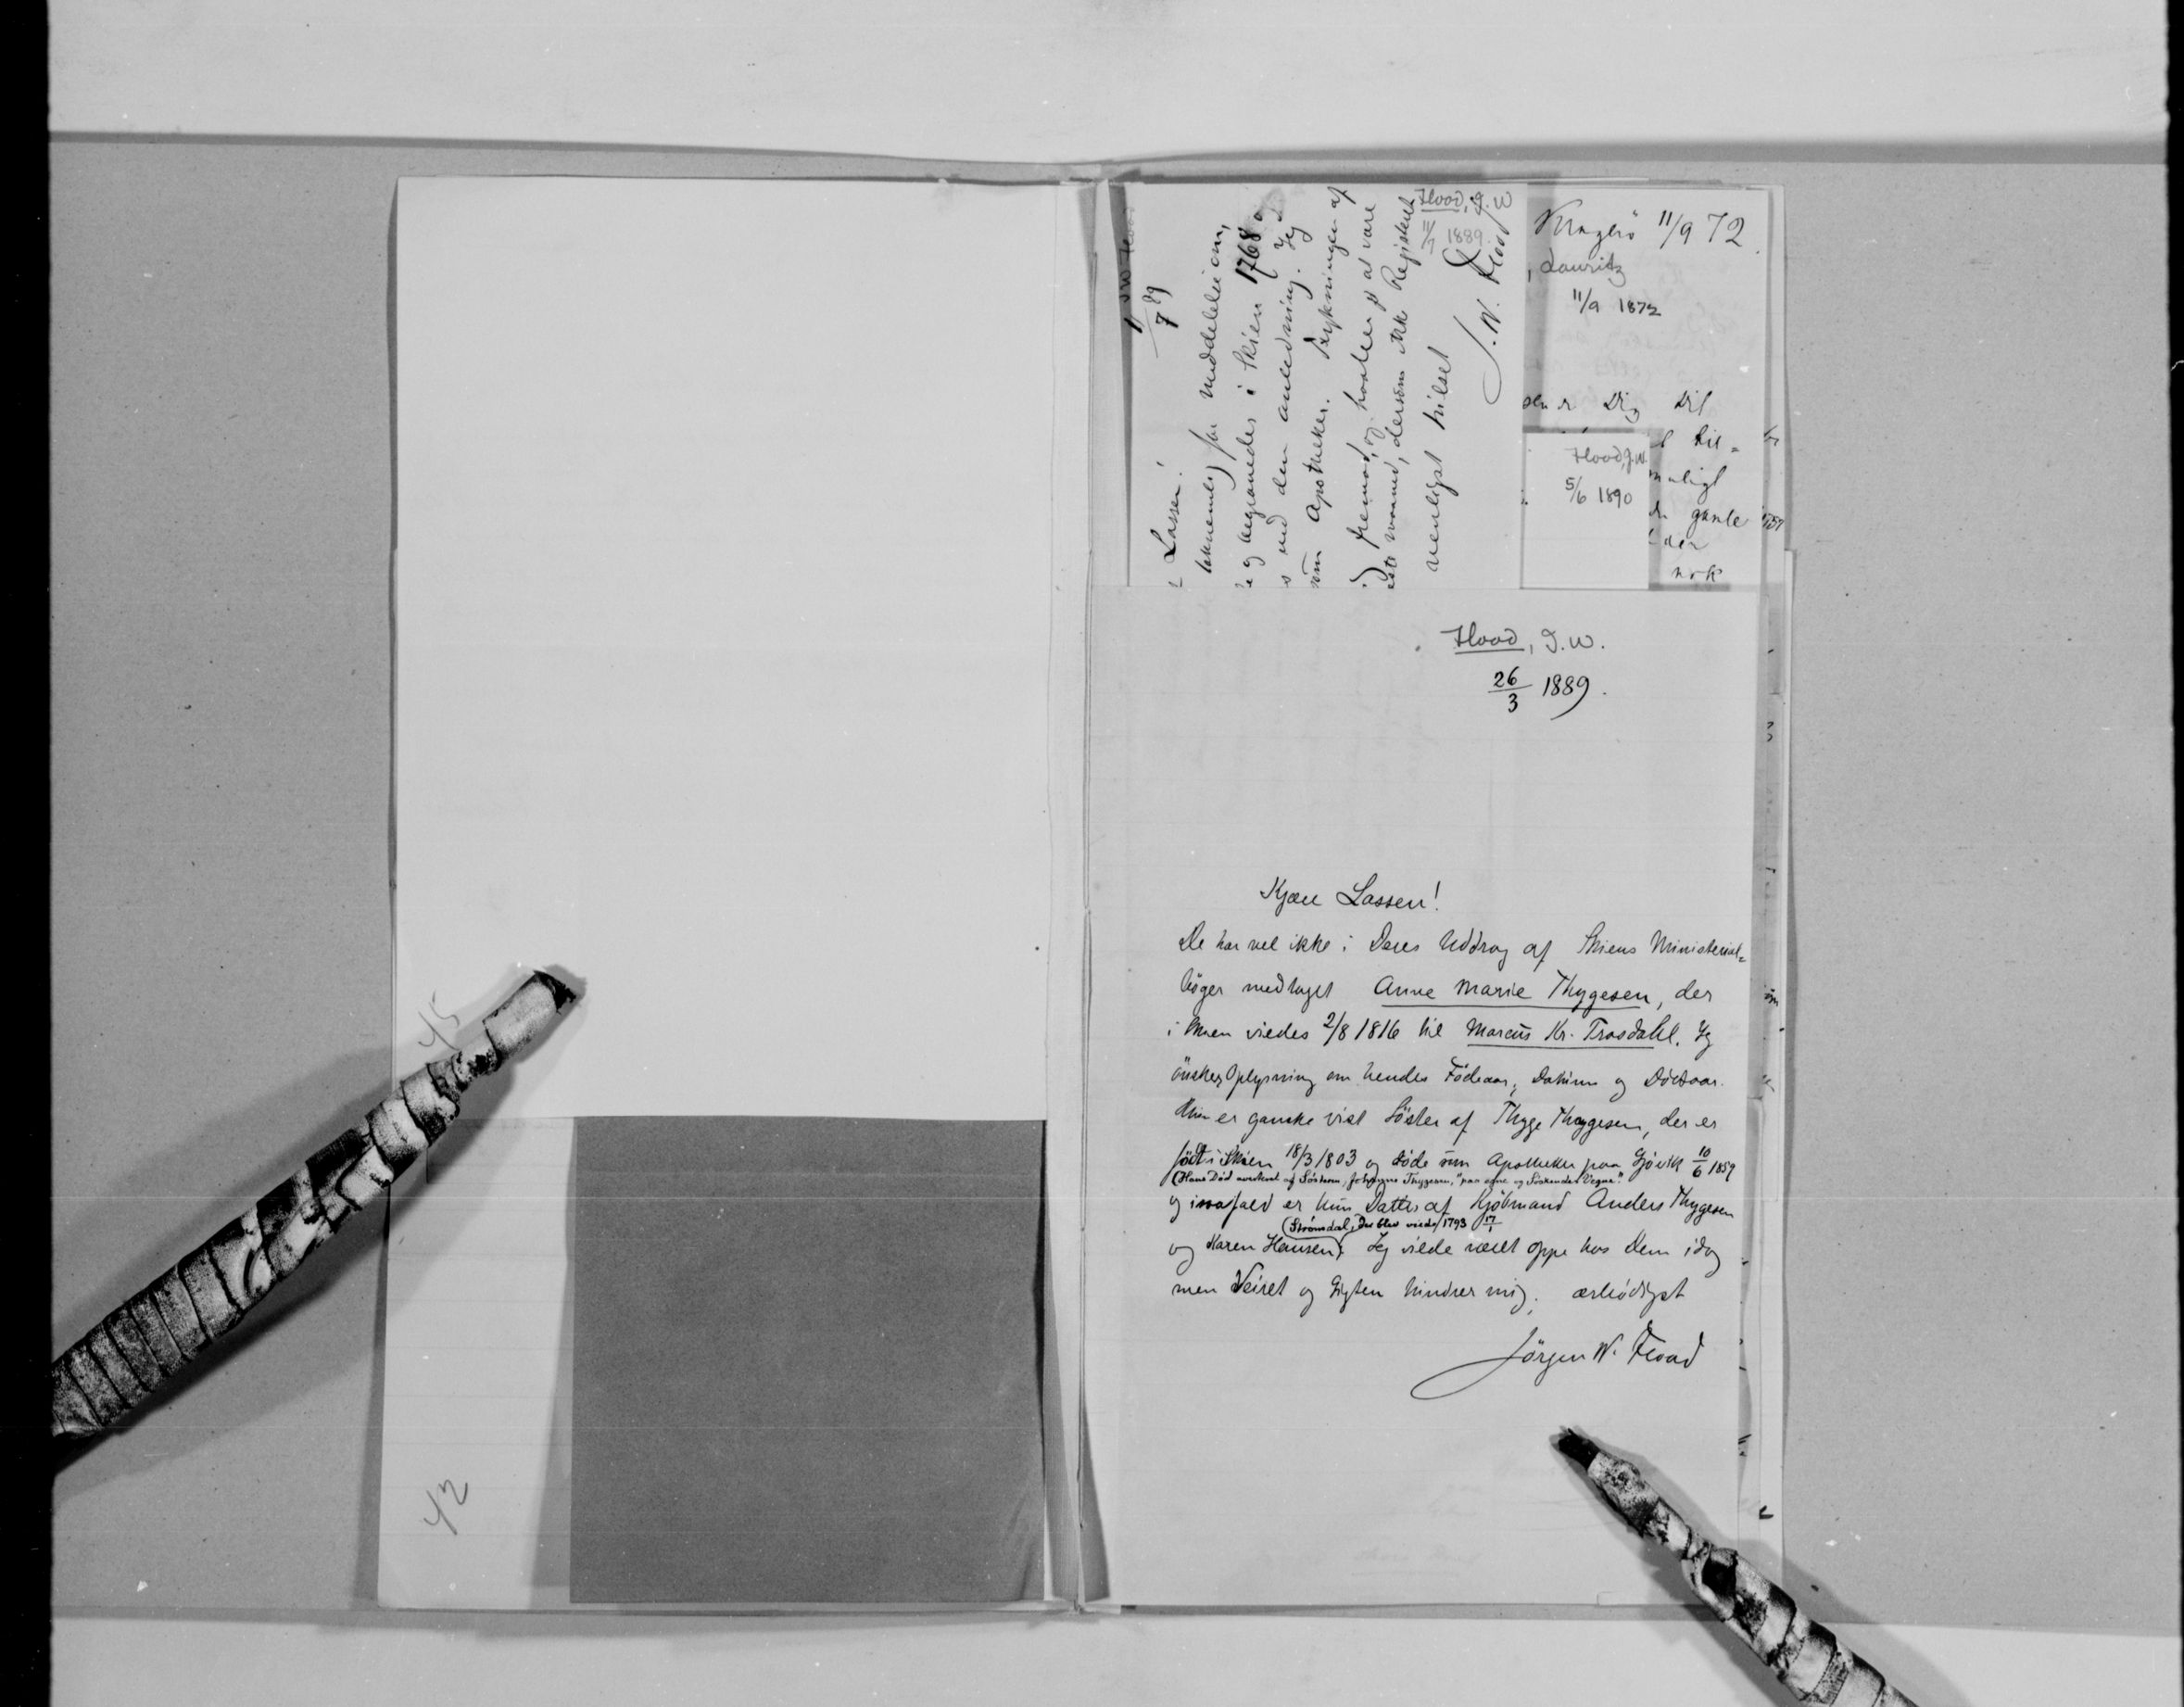 45
42
11/7 89
Lassen!
for Meddelelse om,
og begravedes i Skien 1768
ved den anledning. Jeg
som Apotheker. Trykningen af
fremad, og haaber jeg at være
dersom ikke Registeret
venligst hilset
J. W. Flood
Flood, J. W
11/7 1889
Kragerö 11/9 72
, Lauritz
11/9 1872
Dig Dit
til=
muligt
gamle
der
nok
Flood, J. W.
5/6 1890
Flood, J. W.
26/3 1889.
Kjære Lassen!
De har vel ikke i Deres Uddrag af Skiens Ministerial=
böger medtaget Anne Marie Thygesen, der
i Skien viedes 2/8 1816 til Marcus Kr. Trosdahl. Jeg
önsker Oplysning om hendes Födeaar, Datum og Dödsaar.
Hun er ganske vist Söster af Thyge Thygesen, der er
födt i Skien 18/3 1803 og döde som Apotheker paa Gjövik 10/6 1859
(Hans Död averteret af Söstern, Johanne Thygesen, "paa egne og Söskendes Vegne".
og i saafald er hun Datter af Kjöbmand Anders Thygesen
(Strömdal, Der blev viede 1793 17/1
og Karen Hansen). Jeg vilde været oppe hos Dem idag
men Veiret og Gigten hindrer mig. ærbödigst
Jörgen W. Flood